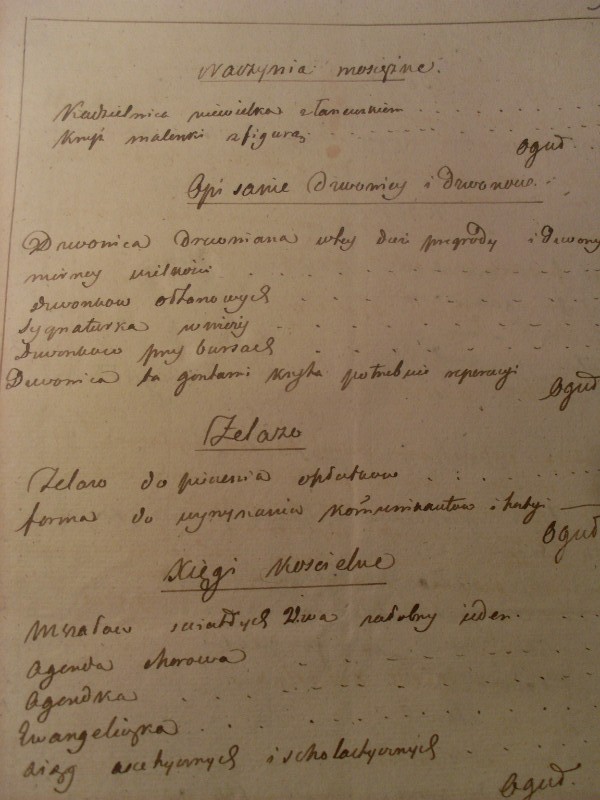 Naczynia mosiężne.
Kadzielnica niewielka z łancuskiem
Krzyż malenki z figurą
Ogul
Opisanie Dzwonicy i Dzwonow.
Dzwonica drewniana w tey dwie pregrody i Dzwony
mirney wielkości
dzwonkow ołtarzowych
Sygnaturka w wieży
Dzwonkow przy bursach
Dzwonica ta gontami kryta potrebuie reperacyi
Ogul
Żelazo
Żelazo do pieczenia opłatkow
forma do wyrzynania kommunikantow i
Ogul
Xięgi Koscielne
Mszałow Dwa żałobny jeden
Agenda chorowa
Agendka
Ewangeliczka
Xiąg ascetycznych i scholastycznych
Ogul.